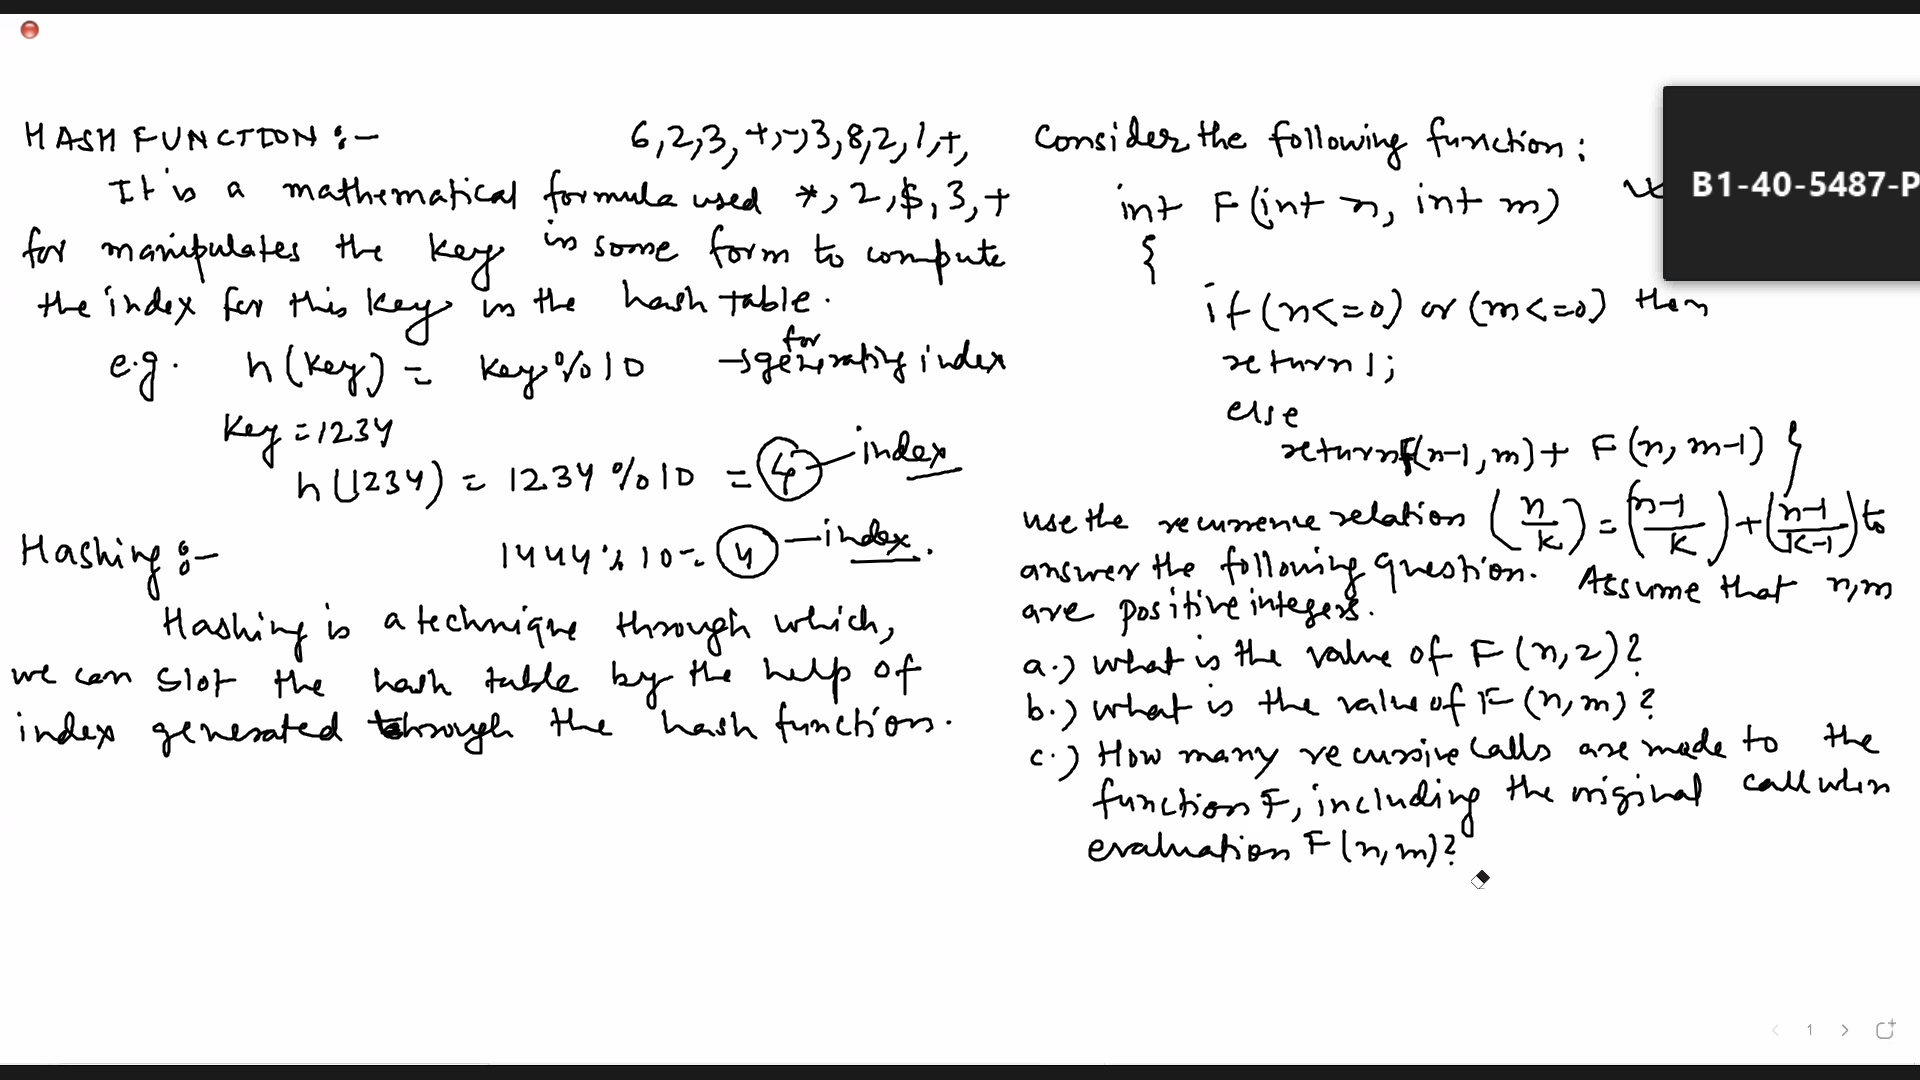 HASH FUNCTION :-
6,2,3,+,-,3,8,2,1,+,
It is a mathematical formula used *, 2, $, 3, +
for manipulates the key in some form to compute
the index for this key in the hash table.
e.g. h(key) = key % 10 → for generating index
key = 1234
h(1234) = 1234 % 10 = 4 — index
Hashing :- 1444 % 10 = 4 — index.
Hashing is a technique through which,
we can slot the hash table by the help of
index generated through the hash function.
Consider the following function :
int F(int n, int m)
{
if (n<=0) or (m<=0) then
return 1;
else
return F(n-1, m) + F(n, m-1) }
use the recurrence relation (n/k) = (n-1/k) + (n-1/k-1) to
answer the following question. Assume that n,m
are positive integers.
a.) what is the value of F(n,2)?
b.) what is the value of F(n,m)?
c.) How many recursive calls are made to the
function F, including the original call when
evaluation F(n,m)?
B1-40-5487-P
1